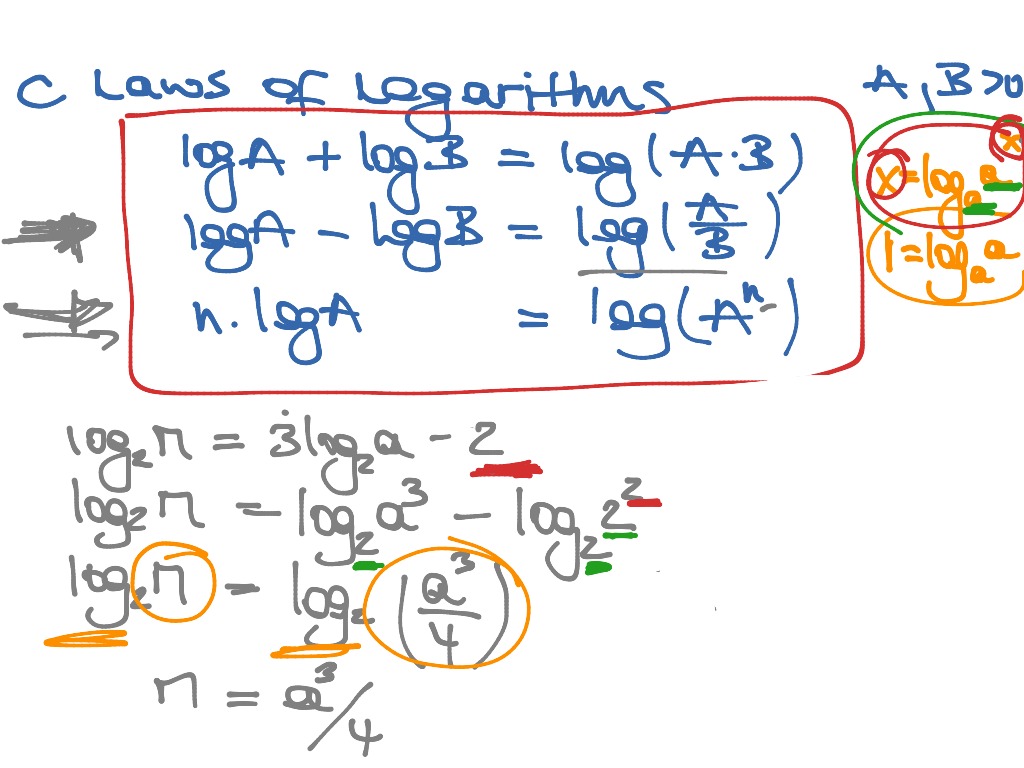 C Laws of Logarithms A, B > 0
log A + log B = log (A · B)
x = logₐ aˣ
log A − log B = log (A/B)
1 = logₐ a
n. log A = log (Aⁿ)
log₂ n = 3 log₂ a − 2
log₂ n = log₂ a³ − log₂ 2²
log₂ n = log₂ (a³/4)
n = a³/4